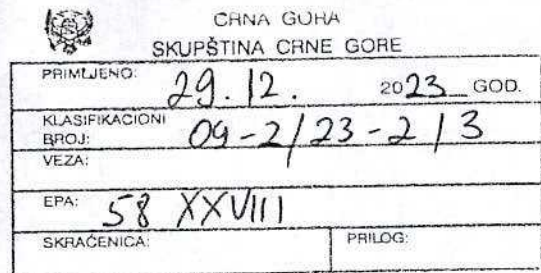 CRNA GORA
SKUPŠTINA CRNE GORE
PRIMLJENO: 29.12. 2023 GOD.
KLASIFIKACIONI
BROJ: 09-2/23-2/3
VEZA:
EPA: 58 XXVIII
SKRAĆENICA: PRILOG: